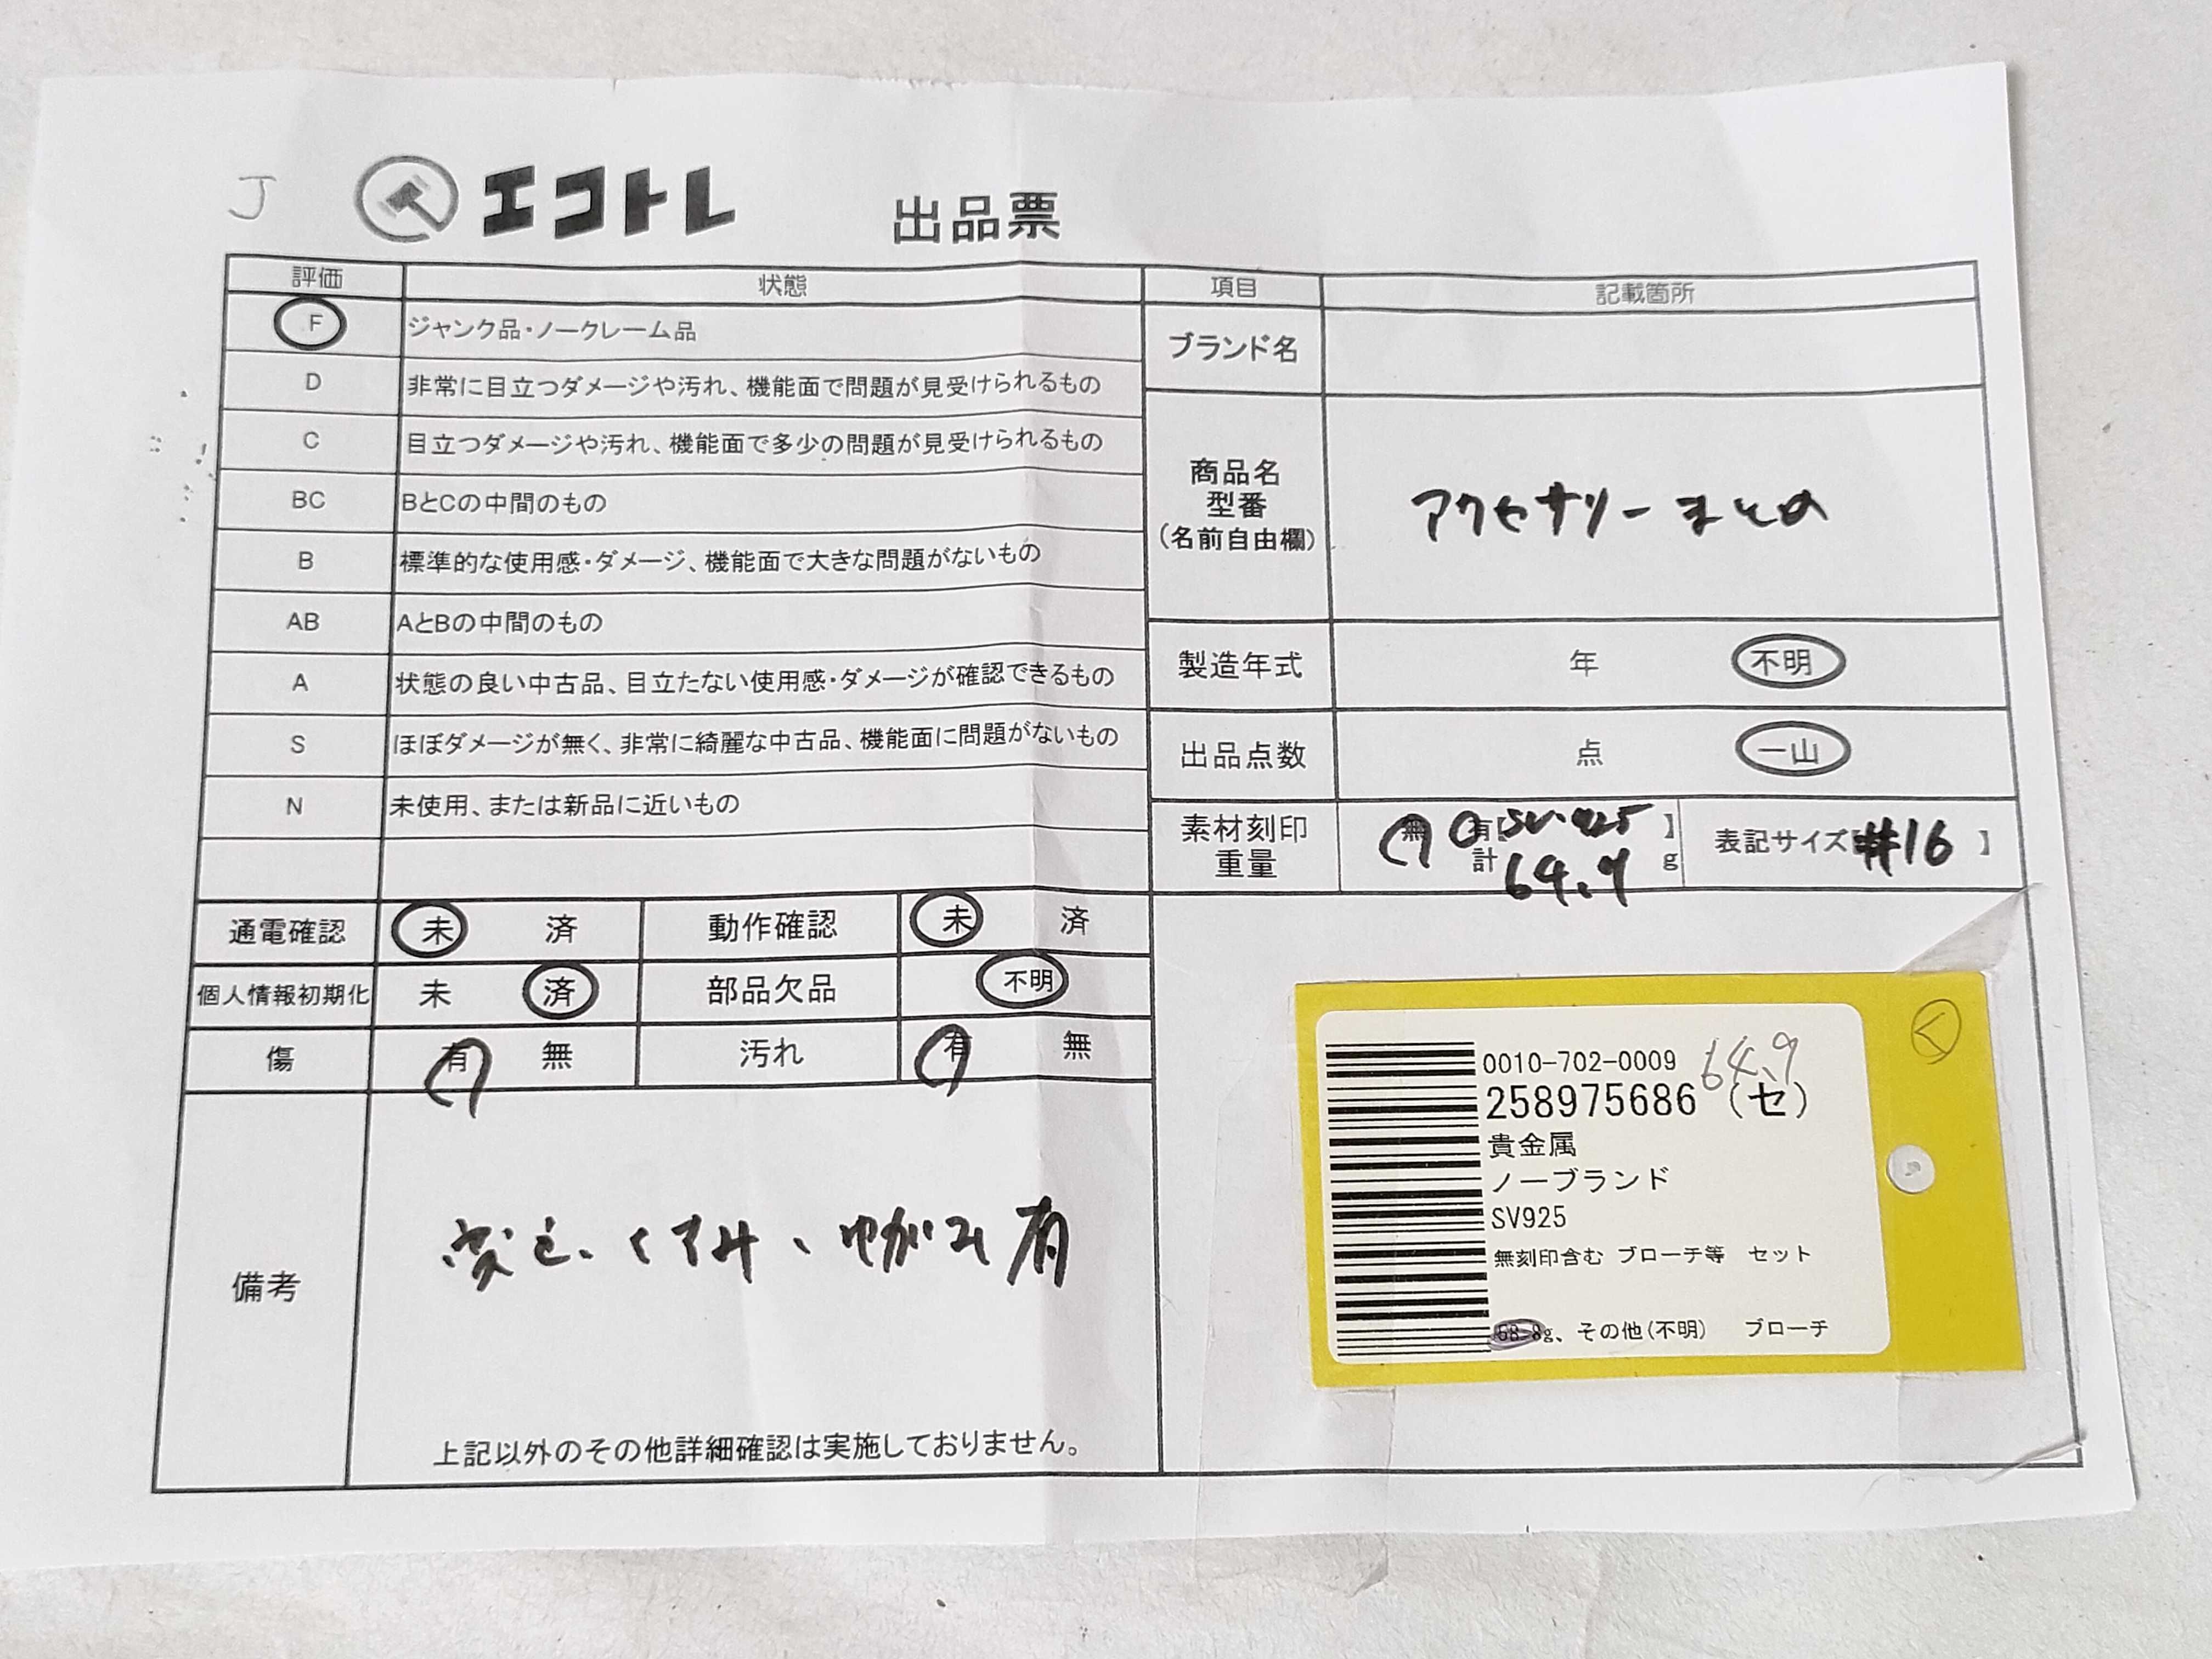 J
エコトレ 出品票
評価 状態
F ジャンク品・ノークレーム品
D 非常に目立つダメージや汚れ、機能面で問題が見受けられるもの
C 目立つダメージや汚れ、機能面で多少の問題が見受けられるもの
BC BとCの中間のもの
B 標準的な使用感・ダメージ、機能面で大きな問題がないもの
AB AとBの中間のもの
A 状態の良い中古品、目立たない使用感・ダメージが確認できるもの
S ほぼダメージが無く、非常に綺麗な中古品、機能面に問題がないもの
N 未使用、または新品に近いもの
通電確認 未 済 動作確認 未 済
個人情報初期化 未 済 部品欠品 不明
傷 有 無 汚れ 有 無
備考
変色、くすみ、ゆがみ有
上記以外のその他詳細確認は実施しておりません。
項目 記載箇所
ブランド名
商品名
型番
(名前自由欄)
アクセサリーまとめ
製造年式 年 不明
出品点数 点 一山
素材刻印 無 有【SV.925】
重量 計 64.9 g
表記サイズ【#16】
く
0010-702-0009
64.9
258975686 (セ)
貴金属
ノーブランド
SV925
無刻印含む ブローチ等 セット
g、その他(不明) ブローチ